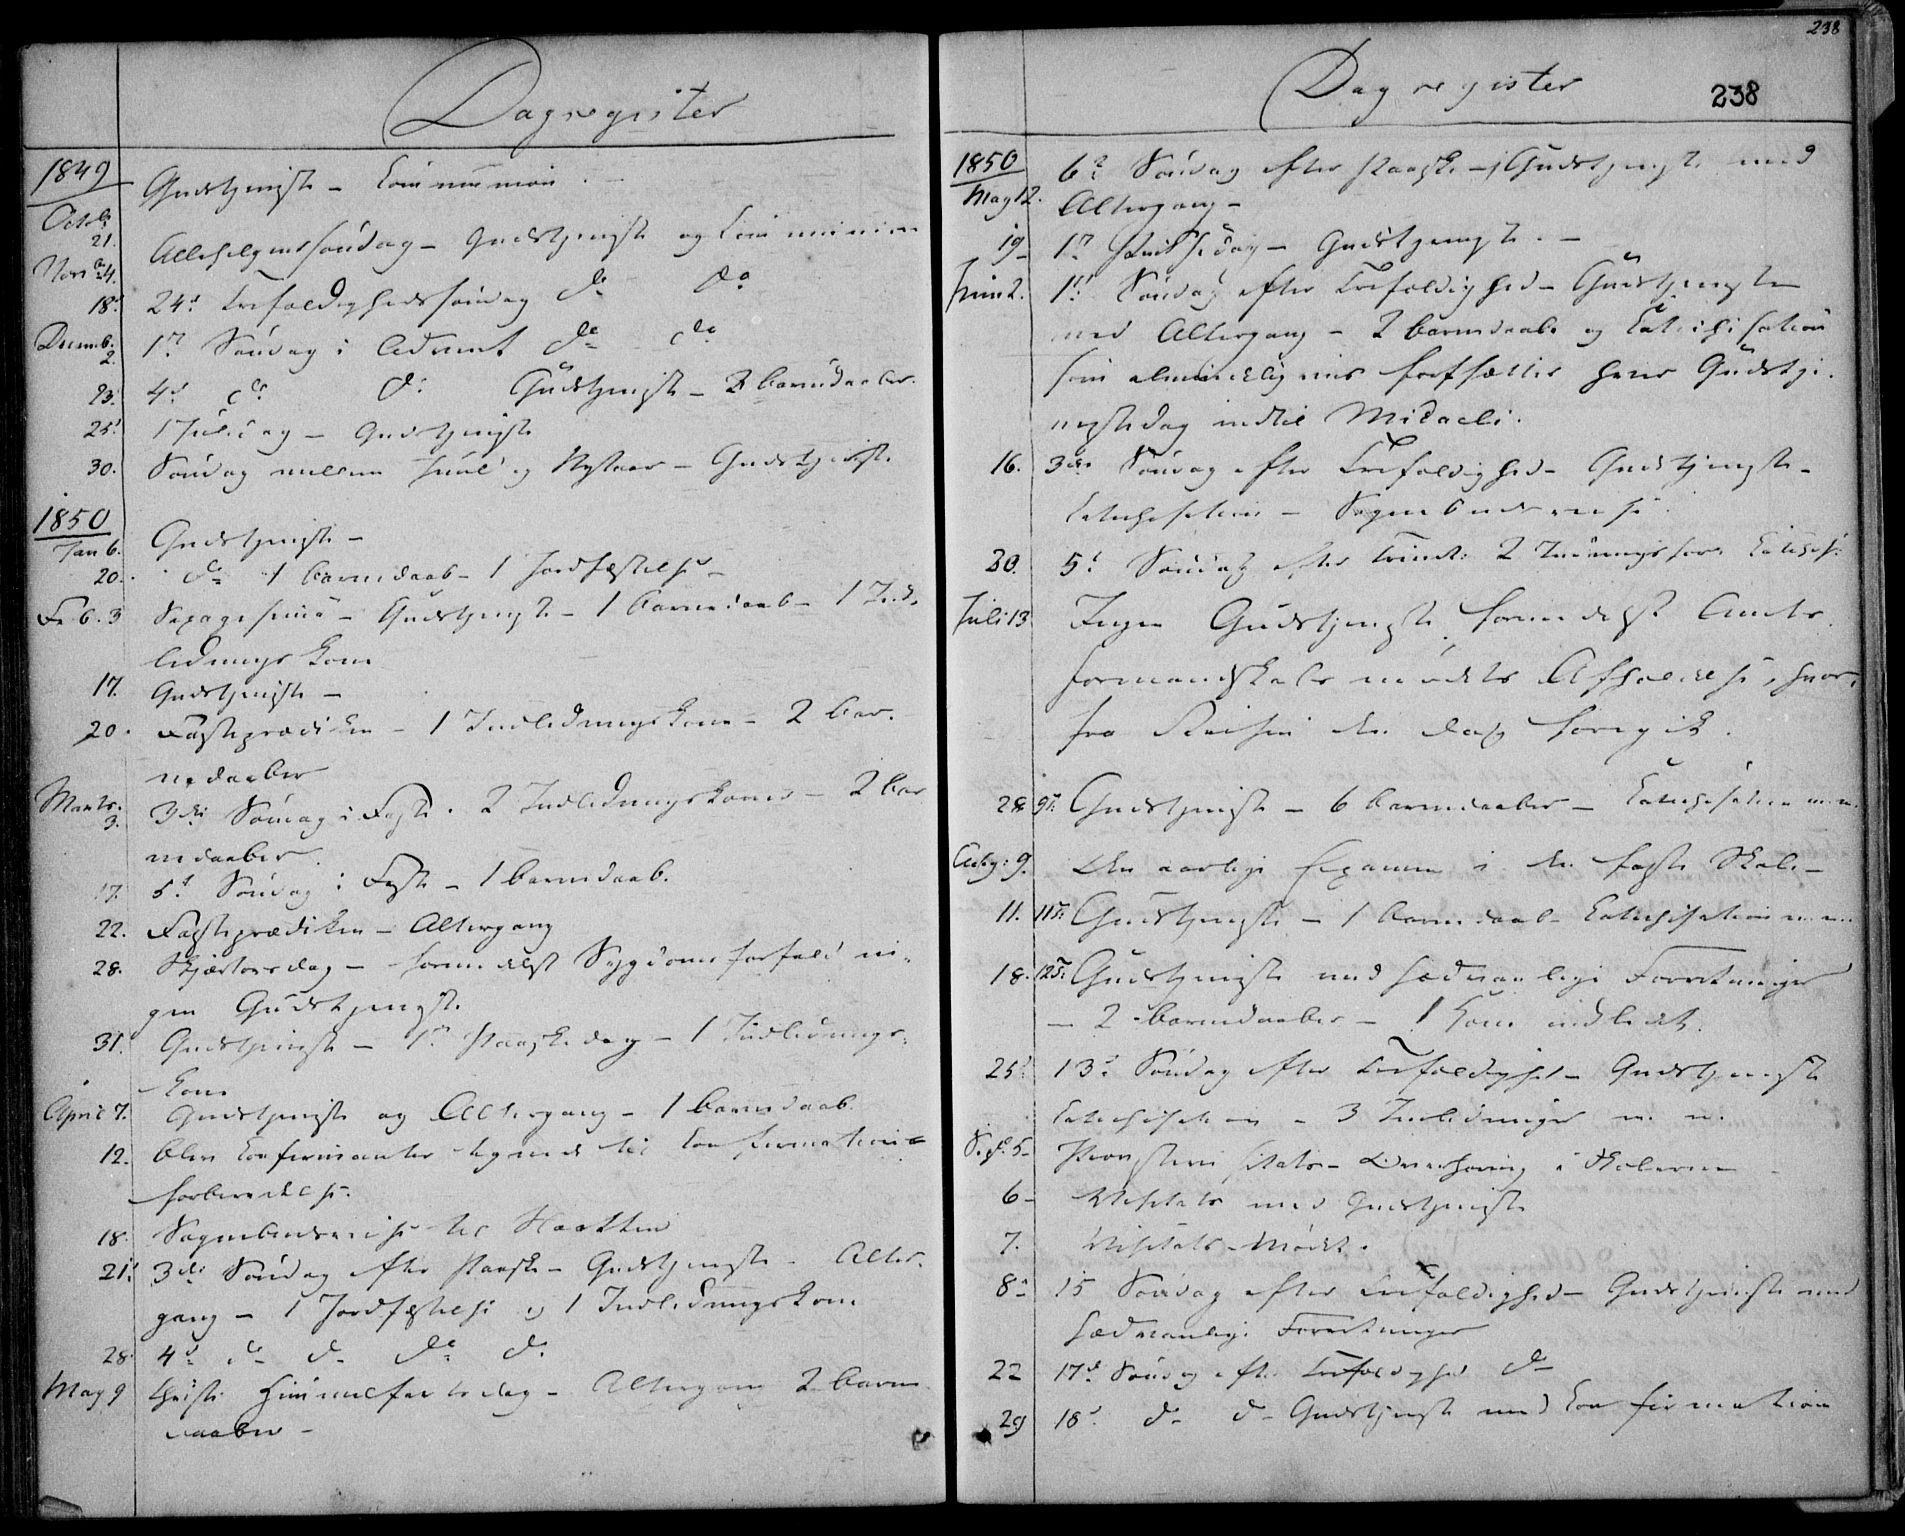 Dagregister
1849
Gudstjeniste - Communion.
Octob. 21.
Allehelgenssøndag - Gudstjeniste og Communion
Novbr. 4.
18de 24de Trefoldighedssøndag do do
Decemb. 2. 1ste Søndag i Advent do do
23. 4de do do Gudstjeniste - 2 Barnedaaber.
25de 1 Juledag - Gudstjeniste
30. Søndag mellem Juul og Nytaar - Gudstjeniste
1850
Jan 6. Gudstjeniste -
20. do 1 Barnedaab - 1 Jordfæstelse -
Feb. 3 Sexagesima - Gudstjeniste - 1 Barnedaab - 1 Ind-
ledningskone
17. Gudstjeniste -
20. Fasteprædiken - 1 Indledningskone - 2 Bar-
nedaaber
Marts 3. 3die Søndag i Faste. 2 Indledningskoner - 2 Bar
nedaaber.
17. 5te Søndag i Faste - 1 Barnedaab.
22. Fasteprædiken - Altergang
28. Skjærtorsdag - formedelst Sygdomsforfald in-
gen Gudstjeneste
31. Gudstjeniste - 1ste Paaskedag - 1 Indlednings-
kone
April 7. Gudstjeniste og Altergang - 1 Barnedaab.
12. blev Confirmanter tegnede til Confirmations
forberedelse.
18. Sognebudsreise til
21de 3die Søndag efter Paaske - Gudstjeniste - Alter-
gang - 1 Jordfæstelse og 1 Indledningskone
28. 4de do do do do
May 9 Christi Himmelfartsdag - Altergang 2 Barne
daaber -
238
Dagregister
238
1850
May 12. 6te Søndag efter Paaske - Gudstjeniste med
Altergang -
19 - 1ste Pintsedag - Gudstjeneste. -
Juni 2. 1ste Søndag efter Trefoldighed - Gudstjeneste
med Altergang - 2 Barnedaabe og Catechisation
som almindeligviis fortsættes hver Gudstje-
nestedag indtil Michaeli.
16. 3die Søndag efter Trefoldighed - Gudstjeneste -
Catechisation - Sognebudsreise.
30. 5te Søndag efter Trinit: 2 Catechis:
Juli 13 Ingen Gudstjeneste formedelst Amts-
formandskabsmødets Afholdelse, hvor-
fra Reisen den Dag foregik.
28 9T. Gudstjeniste - 6 Barnedaaber - Catechisation m.m.
Aug: 9. Den aarlige Examen i den faste Skole -
11. 11T. Gudstjeneste - 1 Barnedaab - Catechisation m.m.
18. 12T. Gudstjeniste med sædvanlige Forretninger
- 2 Barnedaaber - 1 Kone indledt.
25de 13de Søndag efter Trefoldighed - Gudstjeneste
Catechisation - 3 Indledninger m. m.
Sept. 5 - Provstevisitats - Overhøring i Skolerne -
6 - Visitats med Gudstjeniste
7. Visitats-Møde.
8 - 15 Søndag efter Trefoldighed - Gudstjeniste med
sædvanlige Forretninger
22 17de Søndag efter Trefoldighed do
29 18de do do - Gudstjeneste med Confirmation